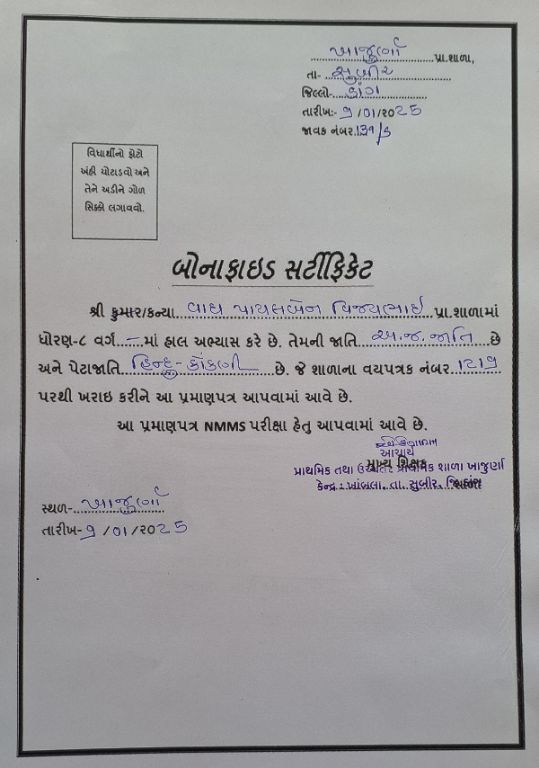 ખાજુર્ણા પ્રા.શાળા,
તા- સુબીર
જિલ્લો- ડાંગ
તારીખ:- 9/01/૨૦25
જાવક નંબર.131/5
વિદ્યાર્થીનો ફોટો
અહીં ચોટાડવો અને
તેને અડીને ગોળ
સિક્કો લગાવવો.
બોનાફાઇડ સર્ટીફિકેટ
શ્રી કુમાર/કન્યા વાઘ પાયલબેન વિજયભાઇ પ્રા.શાળામાં
ધોરણ-૮ વર્ગ - માં હાલ અભ્યાસ કરે છે. તેમની જાતિ અ.જ.જાતિ છે
અને પેટાજાતિ હિન્દુ-કોંકણી છે. જે શાળાના વયપત્રક નંબર 1219
પરથી ખરાઇ કરીને આ પ્રમાણપત્ર આપવામાં આવે છે.
આ પ્રમાણપત્ર NMMS પરીક્ષા હેતુ આપવામાં આવે છે.
આચાર્ય
મુખ્ય શિક્ષક
પ્રાથમિક તથા ઉચ્ચતર પ્રાથમિક શાળા ખાજુર્ણા
કેન્દ્ર : ખાંબલા. તા. સુબીર.
સ્થળ- ખાજુર્ણા
તારીખ- 9/01/૨૦25